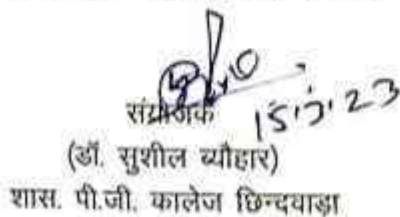 संयोजक
15.7.23
(डॉ. सुशील ब्यौहार)
शास. पी.जी. कालेज छिन्दवाड़ा